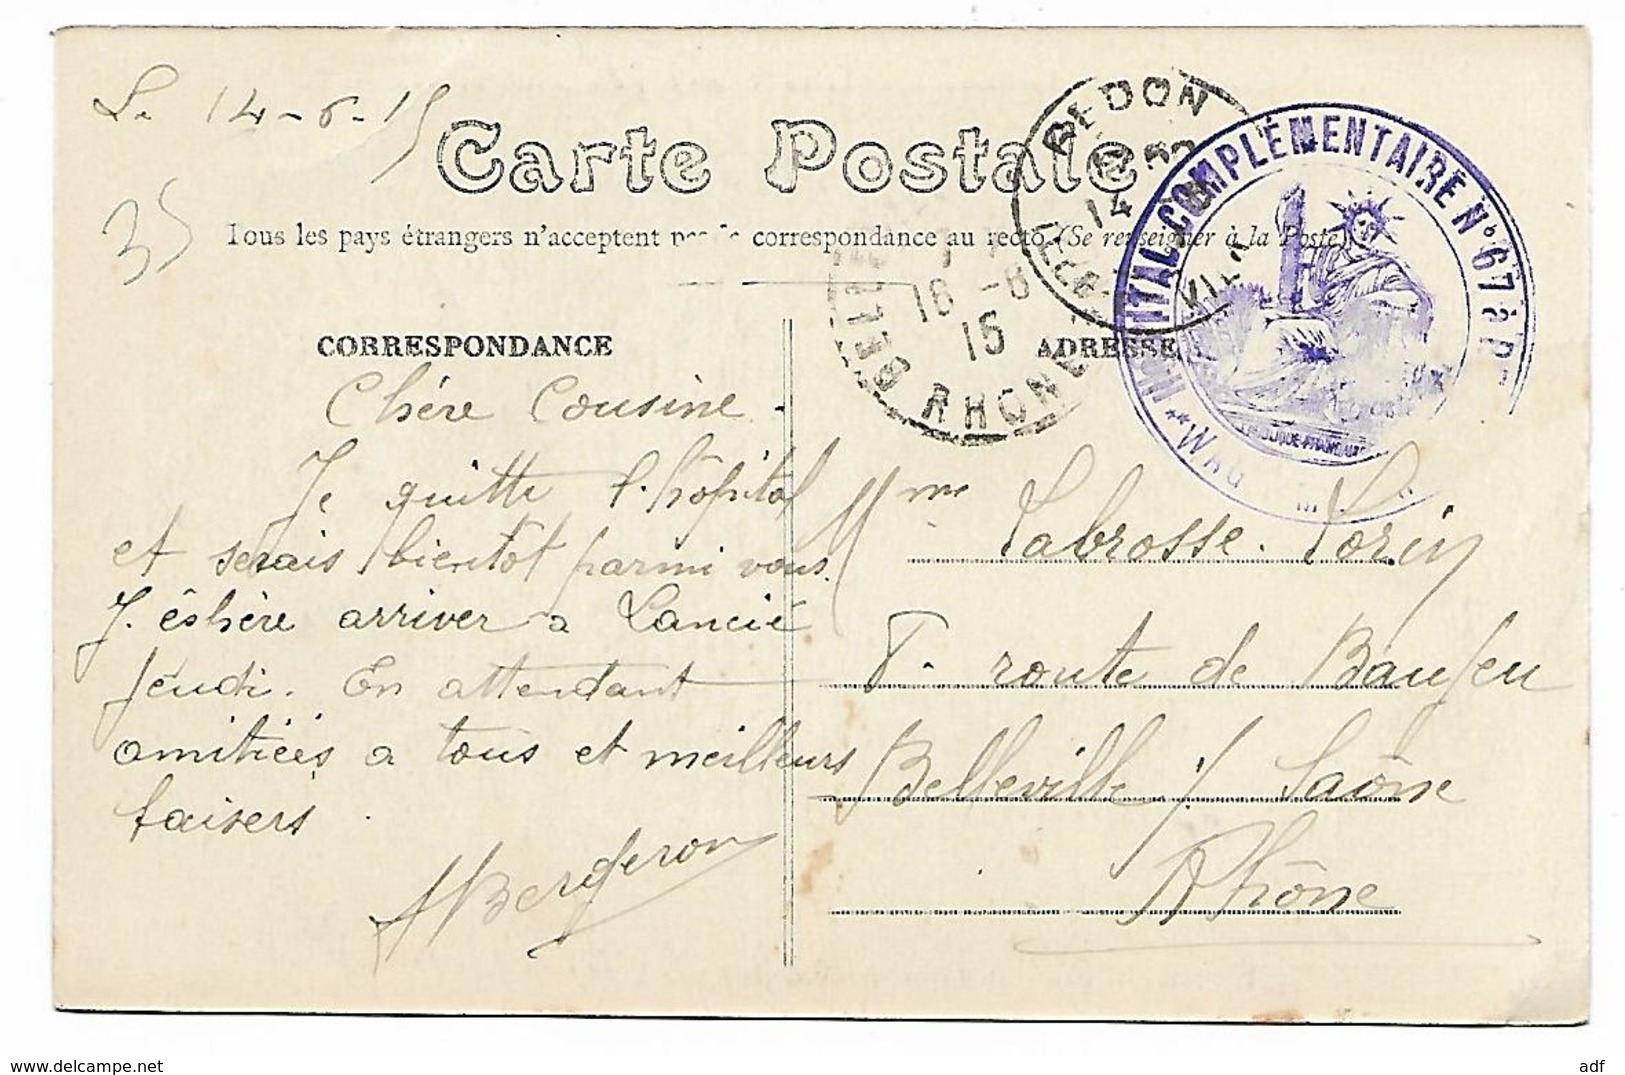 Le 14-6-15
35
Carte Postale
Tous les pays étrangers n'acceptent pas la correspondance au recto (Se renseigner à la Poste)
REDON
14
ILLE-ET-VILAINE
16 -6
15
RHONE
HOPITAL COMPLÉMENTAIRE N° 67 à R
RÉPUBLIQUE FRANÇAISE
CORRESPONDANCE
Chère Cousine.
Je quitte l'hôpital
et serais bientot parmi vous.
J. éspère arriver a Lancié
Jeudi. En attendant
amitiées a tous et meilleurs
baisers.
Bergeron
ADRESSE
Mme Labrosse. Lorin
P. route de Baujeu
Belleville s/ Saône
Rhône
adf
www.delcampe.net